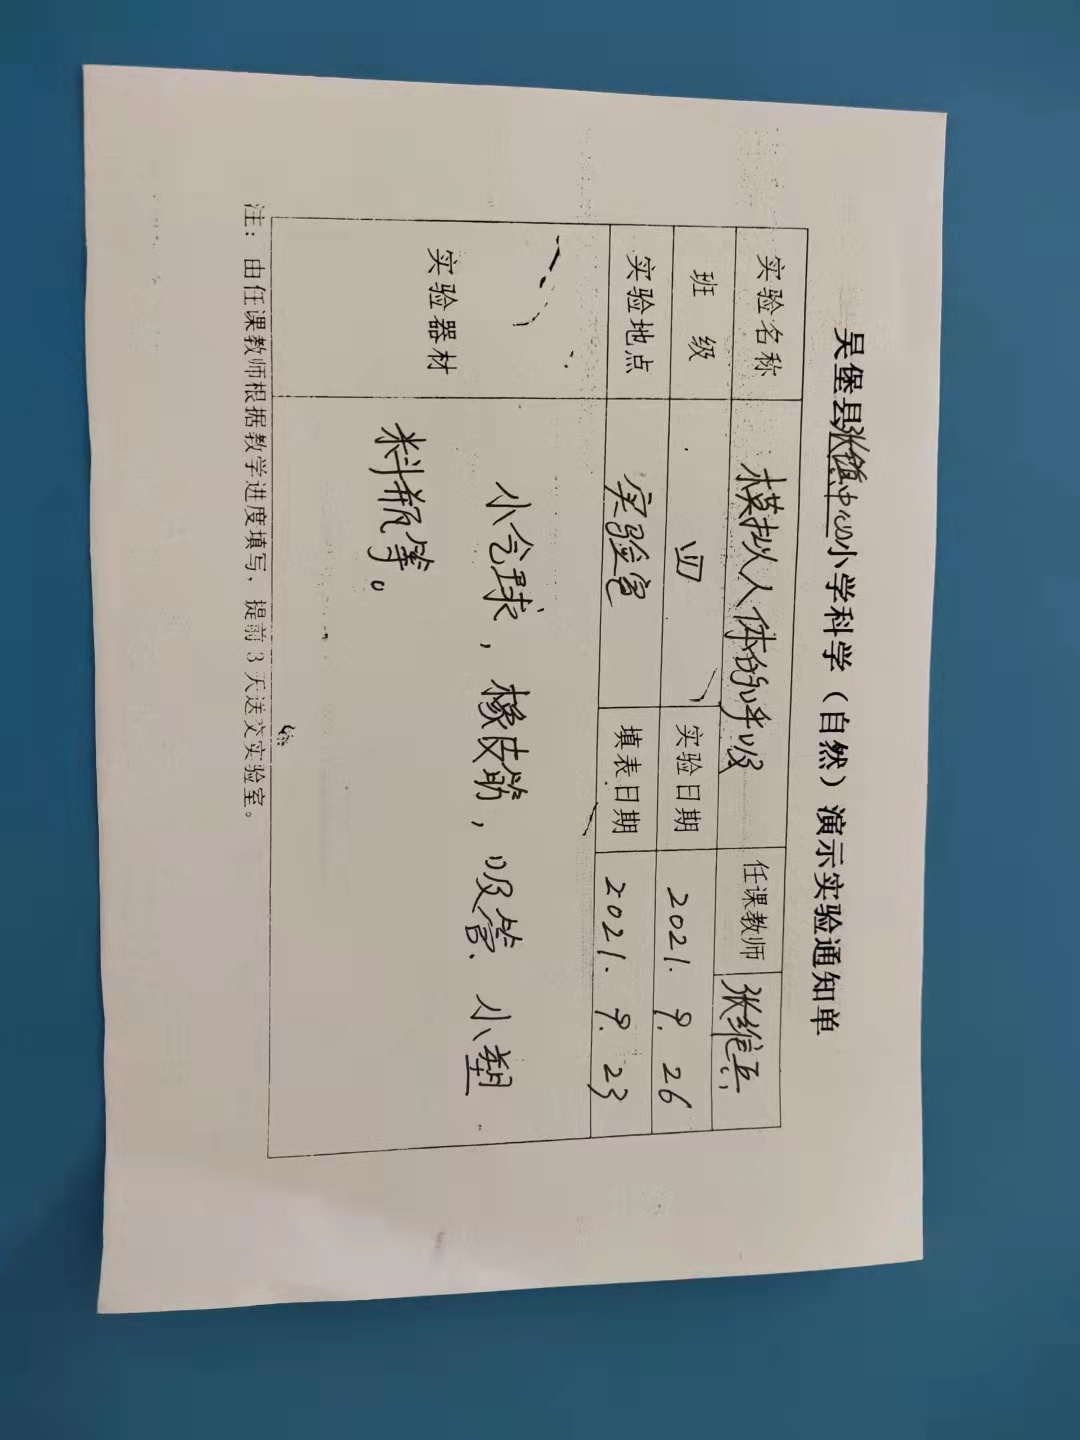 吴堡县张镇中心小学科学（自然）演示实验通知单
实验名称 模拟人体的呼吸 任课教师
班 级 四 实验日期 2021.9.26
实验地点 实验室 填表日期 2021.9.23
实验器材 小气球，橡皮筋，吸管、小塑
料瓶等。
注：由任课教师根据教学进度填写，提前3天送交实验室。